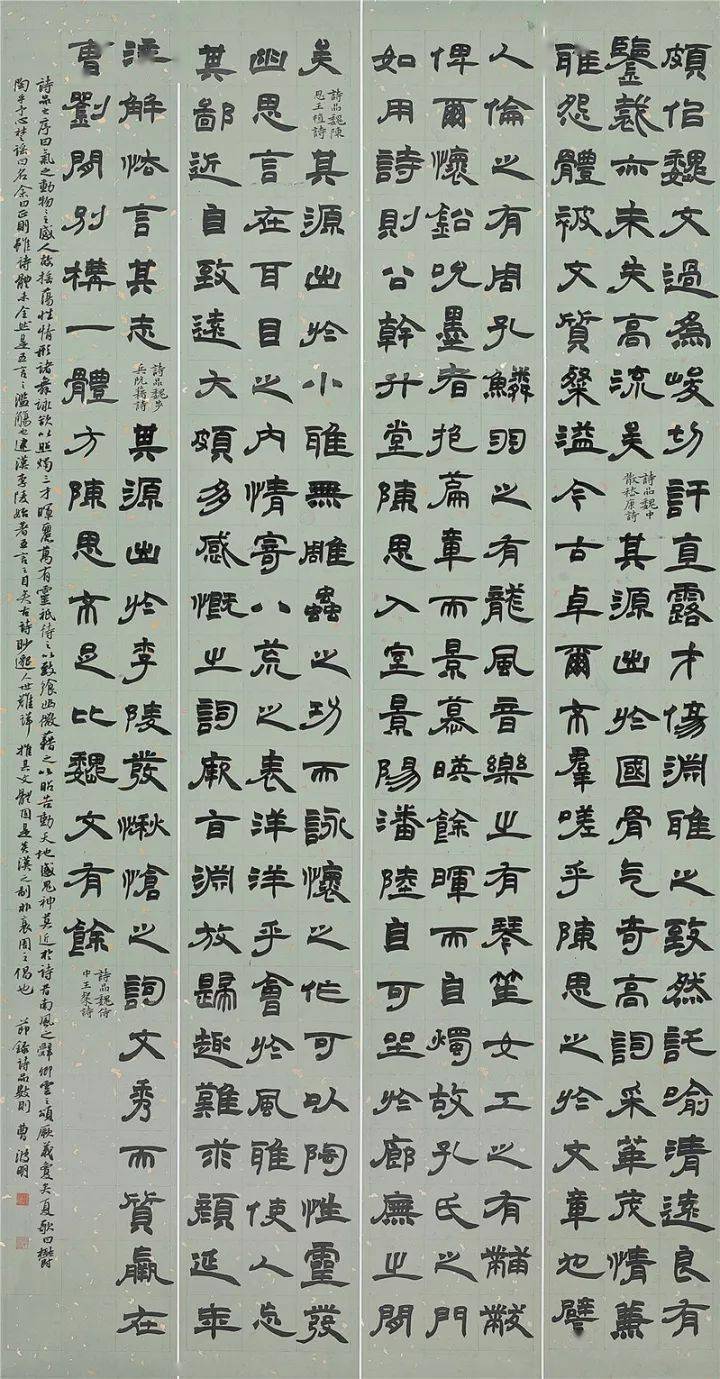 頗佀魏文過為峻切訐直露才傷淵雅之致然託喻清遠良有
鑒裁亦未失高流矣
詩品魏中
散嵇康詩
其源出於國骨气奇高詞采華茂情兼
雅怨體被文質粲溢今古卓爾不羣嗟乎陳思之於文章也譬
人倫之有周孔鱗羽之有龍風音樂之有琴笙女工之有黼黻
俾爾懷鉛吮墨者抱篇章而景慕暎餘暉而自燭故孔氏之門
如用詩則公幹升堂陳思入室景陽潘陸自可坐於廊廡之間
矣
詩品魏陳
思王植詩
其源出於小雅無雕蟲之功而詠懷之作可以陶性靈發
幽思言在耳目之內情寄八荒之表洋洋乎會於風雅使人忘
其鄙近自致遠大頗多感慨之詞厥旨淵放歸趣難求顏延年
注解怯言其志
詩品魏步
兵阮籍詩
其源出於李陵發愀愴之詞文秀而質羸在
曹劉間別構一體方陳思不足比魏文有餘
詩品魏侍
中王粲詩
詩品之序曰氣之動物物之感人故搖蕩性情形諸舞詠欲以照燭三才暉麗萬有靈祇待之以致饗幽微藉之以昭告動天地感鬼神莫近於詩昔南風之辭卿雲之頌厥義夐矣夏歌曰鬱
陶乎予心楚謠曰名余曰正則雖詩體未全然是五言之濫觴也逮漢李陵始著五言之目矣古詩眇邈人世難詳推其文體固是炎漢之制非衰周之倡也 節錄詩品數則 曹 明